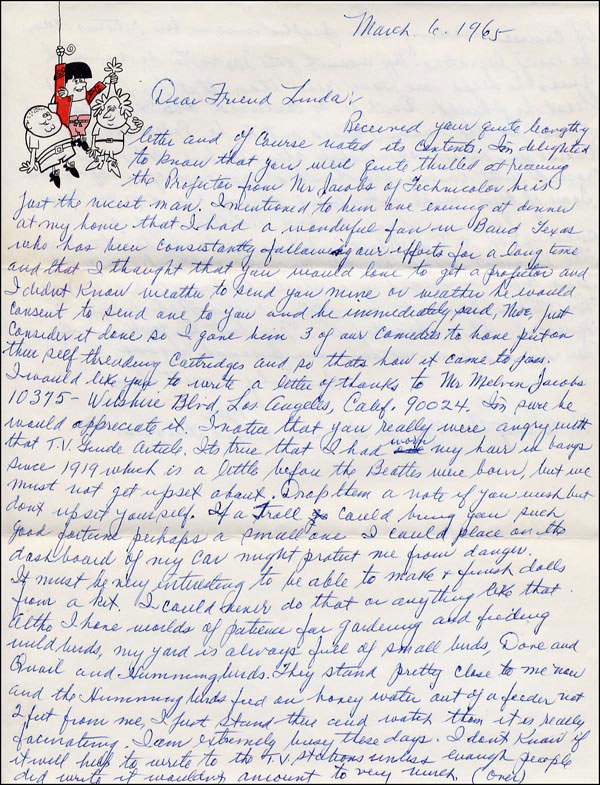 March 6, 1965
Dear Friend Linda:
Received your quite lengthy
letter and of Course noted its Contents. Im delighted
to know that you were quite thrilled at receiving
the Projector from Mr Jacobs of Technicolor he is
just the nicest man. I mentioned to him one evening at dinner
at my home that I had a wonderful fan in Baird Texas
who has been consistantly following our efforts for a long time
and that I thought that you would love to get a projector and
I didnt Know weather to send you mine or weather he would
consent to send one to you and he immediately, said, Moe, just
Consider it done so I gave him 3 of our Comedies to have put on
their self threading Cartridges and so thats how it came to pass.
I would like you to write a letter of thanks to Mr Melvin Jacobs
10375 - Wilshire Blvd, Los Angeles, Calif. 90024. Im sure he
would appreciate it. I notice that you really were angry with
that T.V. Guide Article. Its true that I had worn my hair in bangs
since 1919 which is a little before the Beatles were born, but we
must not get upset about. Drop them a note if you wish but
dont upset yourself. If a Troll could bring you such
good fortune perhaps a small one I could place on the
dashboard of my car might protect me from danger.
It must be very interesting to be able to make & finish dolls
from a kit. I could never do that or anything like that
Altho I have worlds of patience for gardening and feeding
wild birds, my yard is always full of small birds, Dove and
Quail and Hummingbirds. They stand pretty close to me now
and the Humming birds feed on honey water out of a feeder not
2 feet from me, I just stand there and watch them it is really
facinating. I am extremely busy these days. I dont Know if
it will help to write to the T.V. stations unless enough people
did write it wouldnt amount to very much (over)